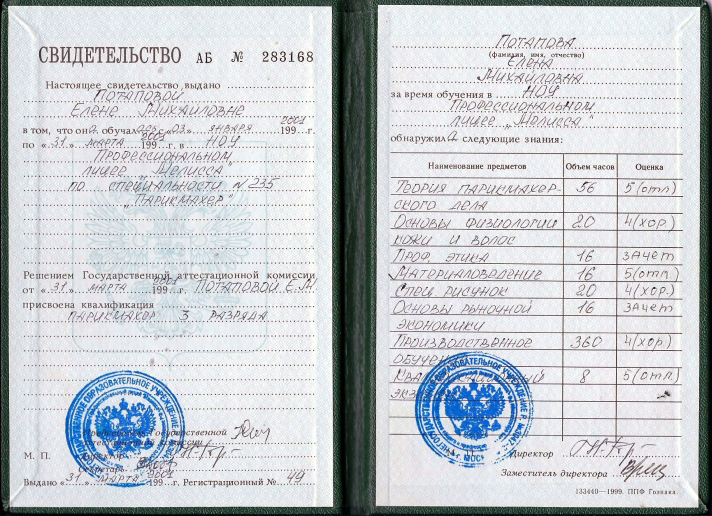 СВИДЕТЕЛЬСТВО АБ № 283168
Настоящее свидетельство выдано
Потаповой
Елене Михайловне
в том, что она обучалась с «03» января 2001 199 г.
по «31» марта 2001 199 г. в НОУ
Профессиональном
лицее „Мелисса"
по специальности №235
„Парикмахер"
Решением Государственной аттестационной комиссии
от «31» марта 2001 199 г. Потаповой Е.М
присвоена квалификация
парикмахер 3 разряда
Председатель Государственной
аттестационной комиссии
М. П. Директор
Секретарь
Выдано «31» марта 2001 199 г. Регистрационный № 49
Потапова
(фамилия, имя, отчество)
Елена
Михайловна
за время обучения в НОУ
Профессиональном
лицее „Мелисса"
обнаружила следующие знания:
Наименование предметов Объем часов Оценка
Теория парикмахер- 56 5(отл)
ского дела
Основы физиологии 20 4(хор.)
кожи и волос
Проф. этика 16 зачет
Материаловедение 16 5(отл.)
Спец рисунок 20 4(хор.)
Основы рыночной 16 зачет
экономики
Производственное 360 4(хор.)
обучен
Ква 8 5(отл.)
экз
Директор
Заместитель директора
133440—1999. ППФ Гознака.